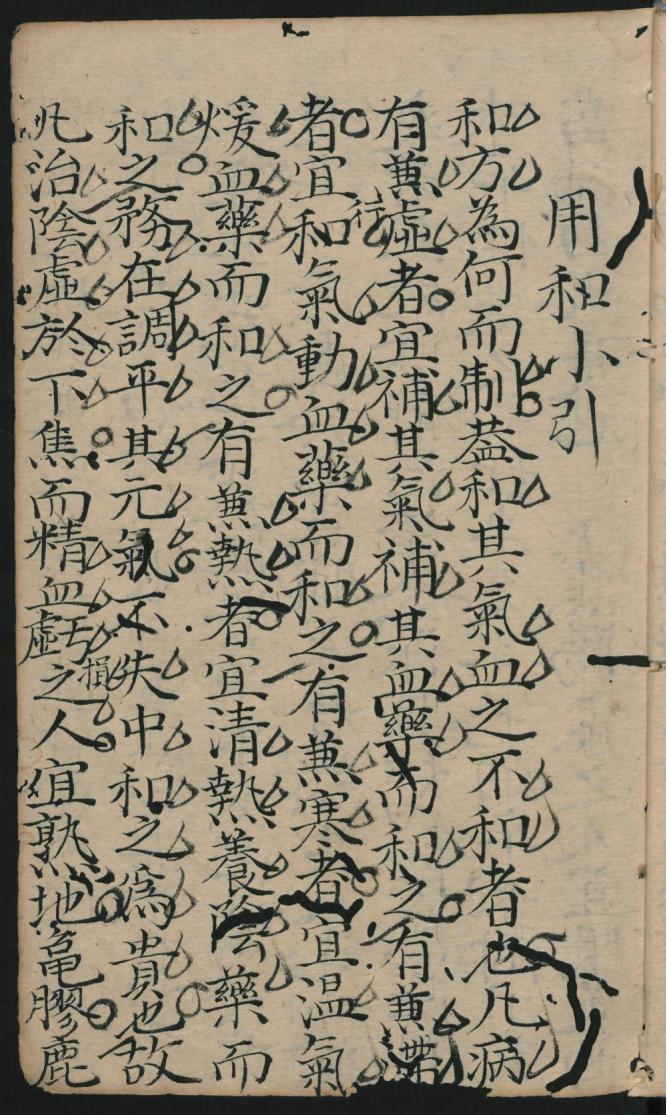 用和小引
和方為何而制葢和其氣血之不和者也凡病
有兼虛者宜補其氣補其血藥而和之有兼滯
者宜和氣行動血藥而和之有兼寒者宜温氣
煖血藥而和之有兼熱者宜清熱養陰藥而
和之務在調平其元氣不失中和之為貴也故
凡治陰虛於下焦而精血虧損之人宜熟地亀膠鹿